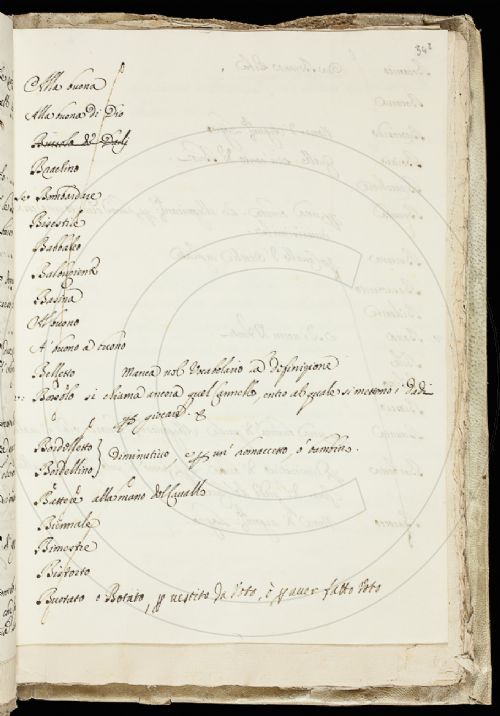 342
Alla buona
Alla buona di Dio
Bacelino
Bombardare
Bisestile
Babbaleo
Balbuziente
Basina
Al buono
A' buono a buono
Belletto Manca nel Vocabolario la Definizione
Bossolo si chiama ancora quel Cannello, entro al quale si mettono i Dadi
p giocare &
Bordelletto
Bordellino } Diminutivo, e p un' omaccetto o' bambin.
Battere alla mano del Cavallo
Biennale
Bimestre
Bistorto
Buotato e Botato, p vestito da Voto, ò p aver fatto Voto